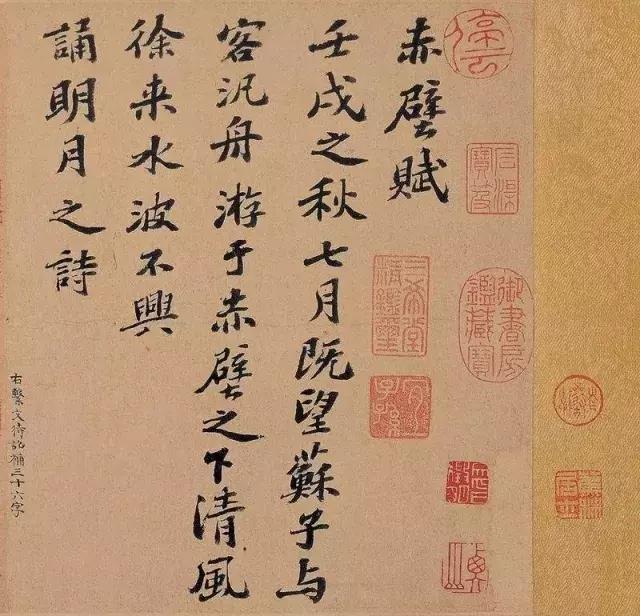 停云
赤壁賦
石渠寶笈
御書房鑑藏寶
三希堂精鑒璽
宜子孫
壬戌之秋七月既望蘇子与
客汎舟游于赤壁之下清風
徐来水波不興
誦明月之詩
右繫文待詔補三十六字